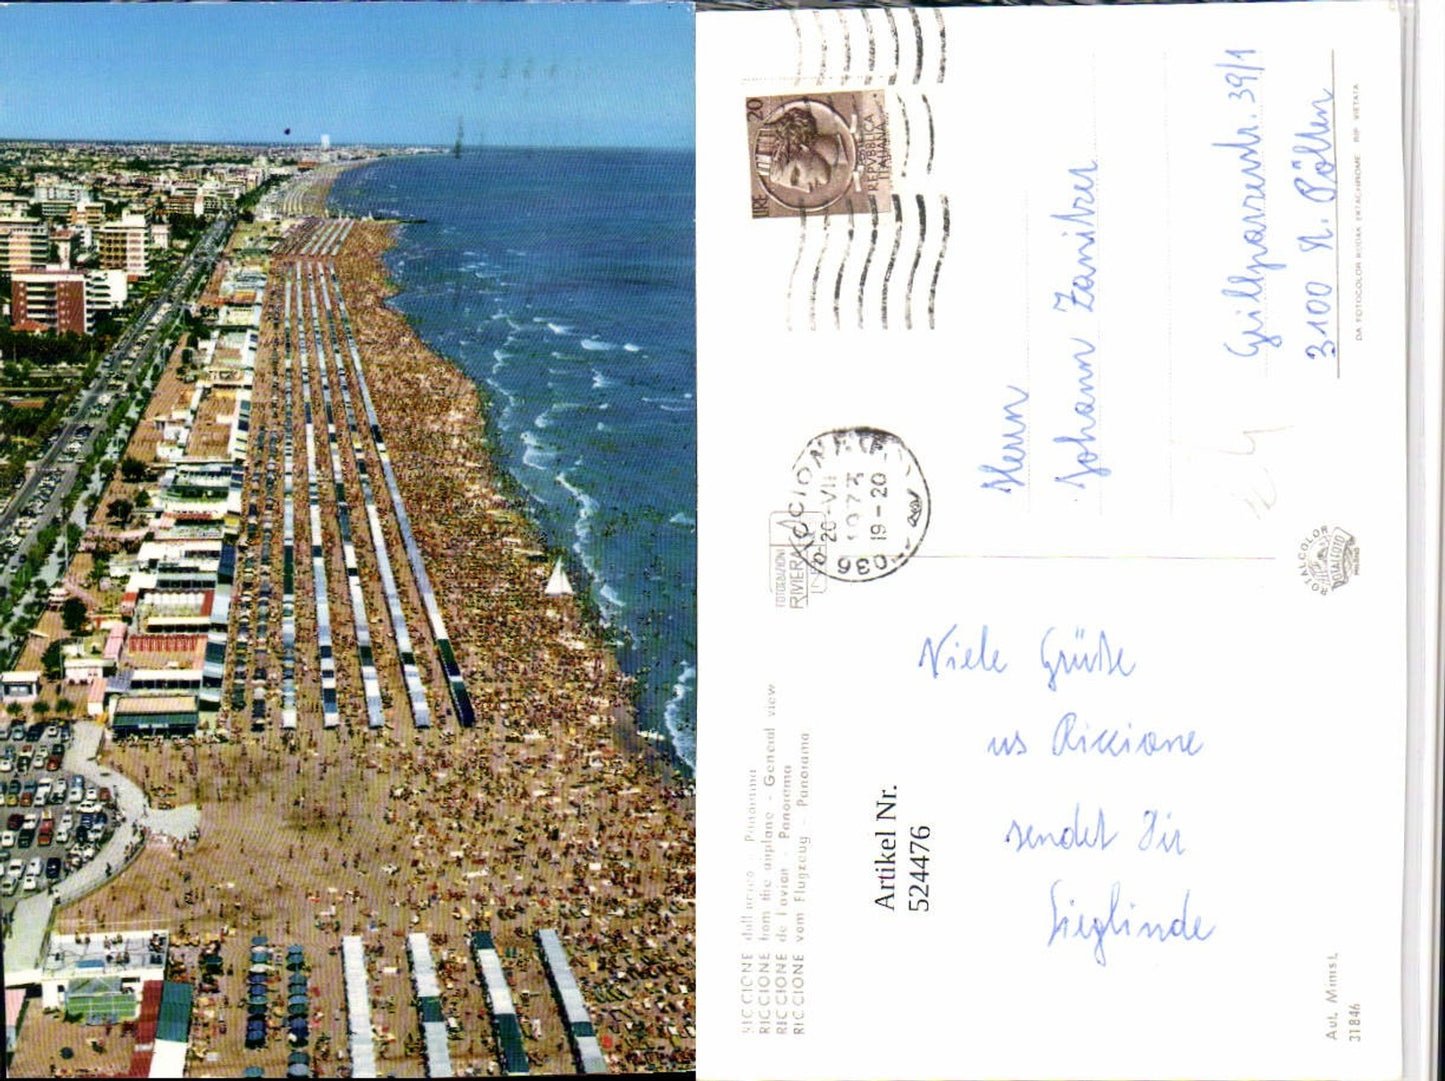 20
LIRE
REPVBBLICA
ITALIANA
RICCIONE
036
19-20
FOTOEDIZIONI
RIVIERA
Herrn
Johann Zanitzer
Grillparzerstr. 39/1
3100 St. Pölten
DA FOTOCOLOR KODAK EKTACHROME RIP. VIETATA
Viele Grüße
us Riccione
sendet Dir
Sieglinde
Artikel Nr.
524476
RICCIONE dall'aereo - Panorama
RICCIONE from the airplane - General view
RICCIONE de l'avion - Panorama
RICCIONE vom Flugzeug - Panorama
31846